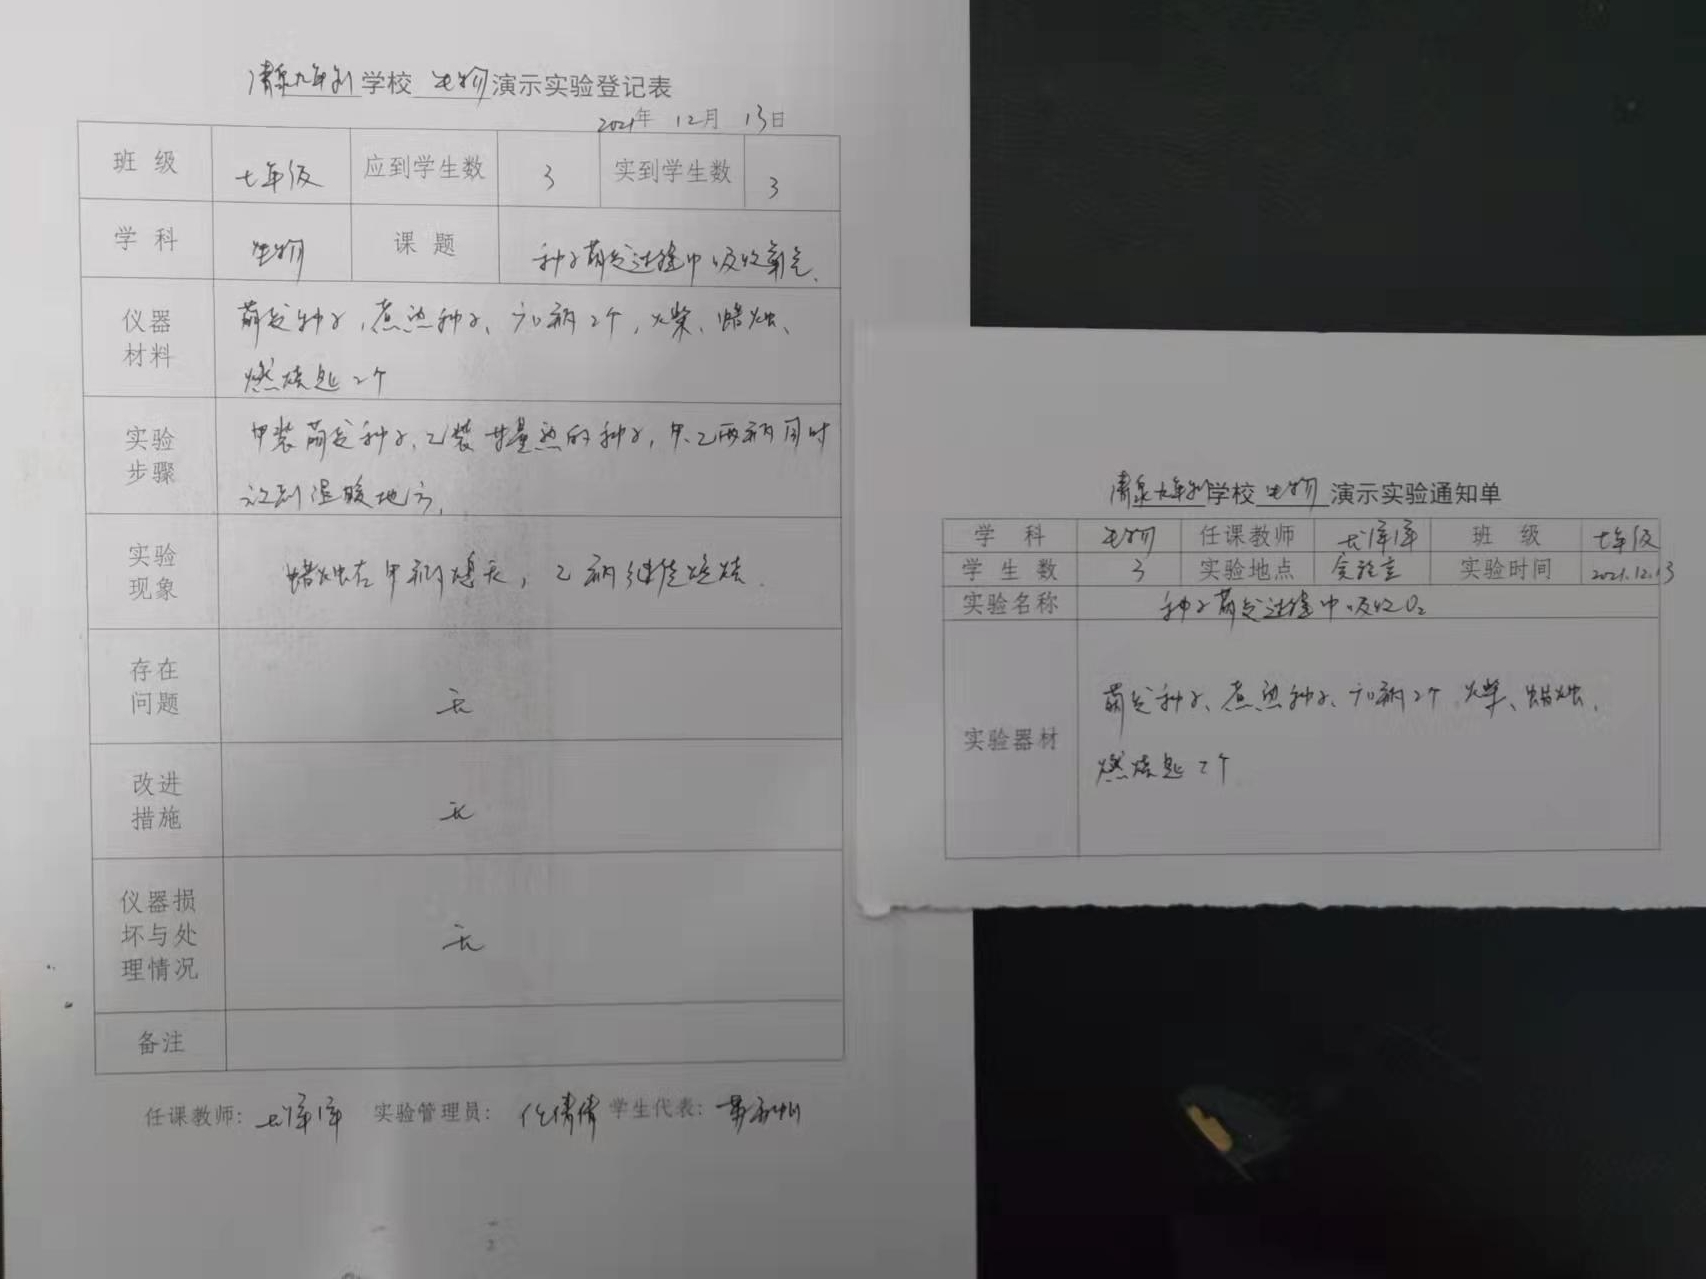 清泉九年制学校 生物 演示实验登记表
2021年 12月 13日
班 级 七年级 应到学生数 3 实到学生数 3
学 科 生物 课 题 种子萌发过程中吸收氧气.
仪器材料 萌发种子,煮熟种子、广口瓶2个,火柴、蜡烛、
燃烧匙2个
实验步骤 甲装萌发种子,乙装等量熟的种子,甲、乙两瓶同时
放到温暖地方.
实验现象 蜡烛在甲瓶熄灭,乙瓶继续燃烧.
存在问题 无
改进措施 无
仪器损坏与处理情况 无
备注
任课教师: 实验管理员: 学生代表:
清泉九年制学校 生物 演示实验通知单
学 科 生物 任课教师 班 级 七年级
学 生 数 3 实验地点 实验室 实验时间 2021.12.13
实验名称 种子萌发过程中吸收O₂
实验器材 萌发种子、煮熟种子、广口瓶2个 火柴、蜡烛、
燃烧匙2个